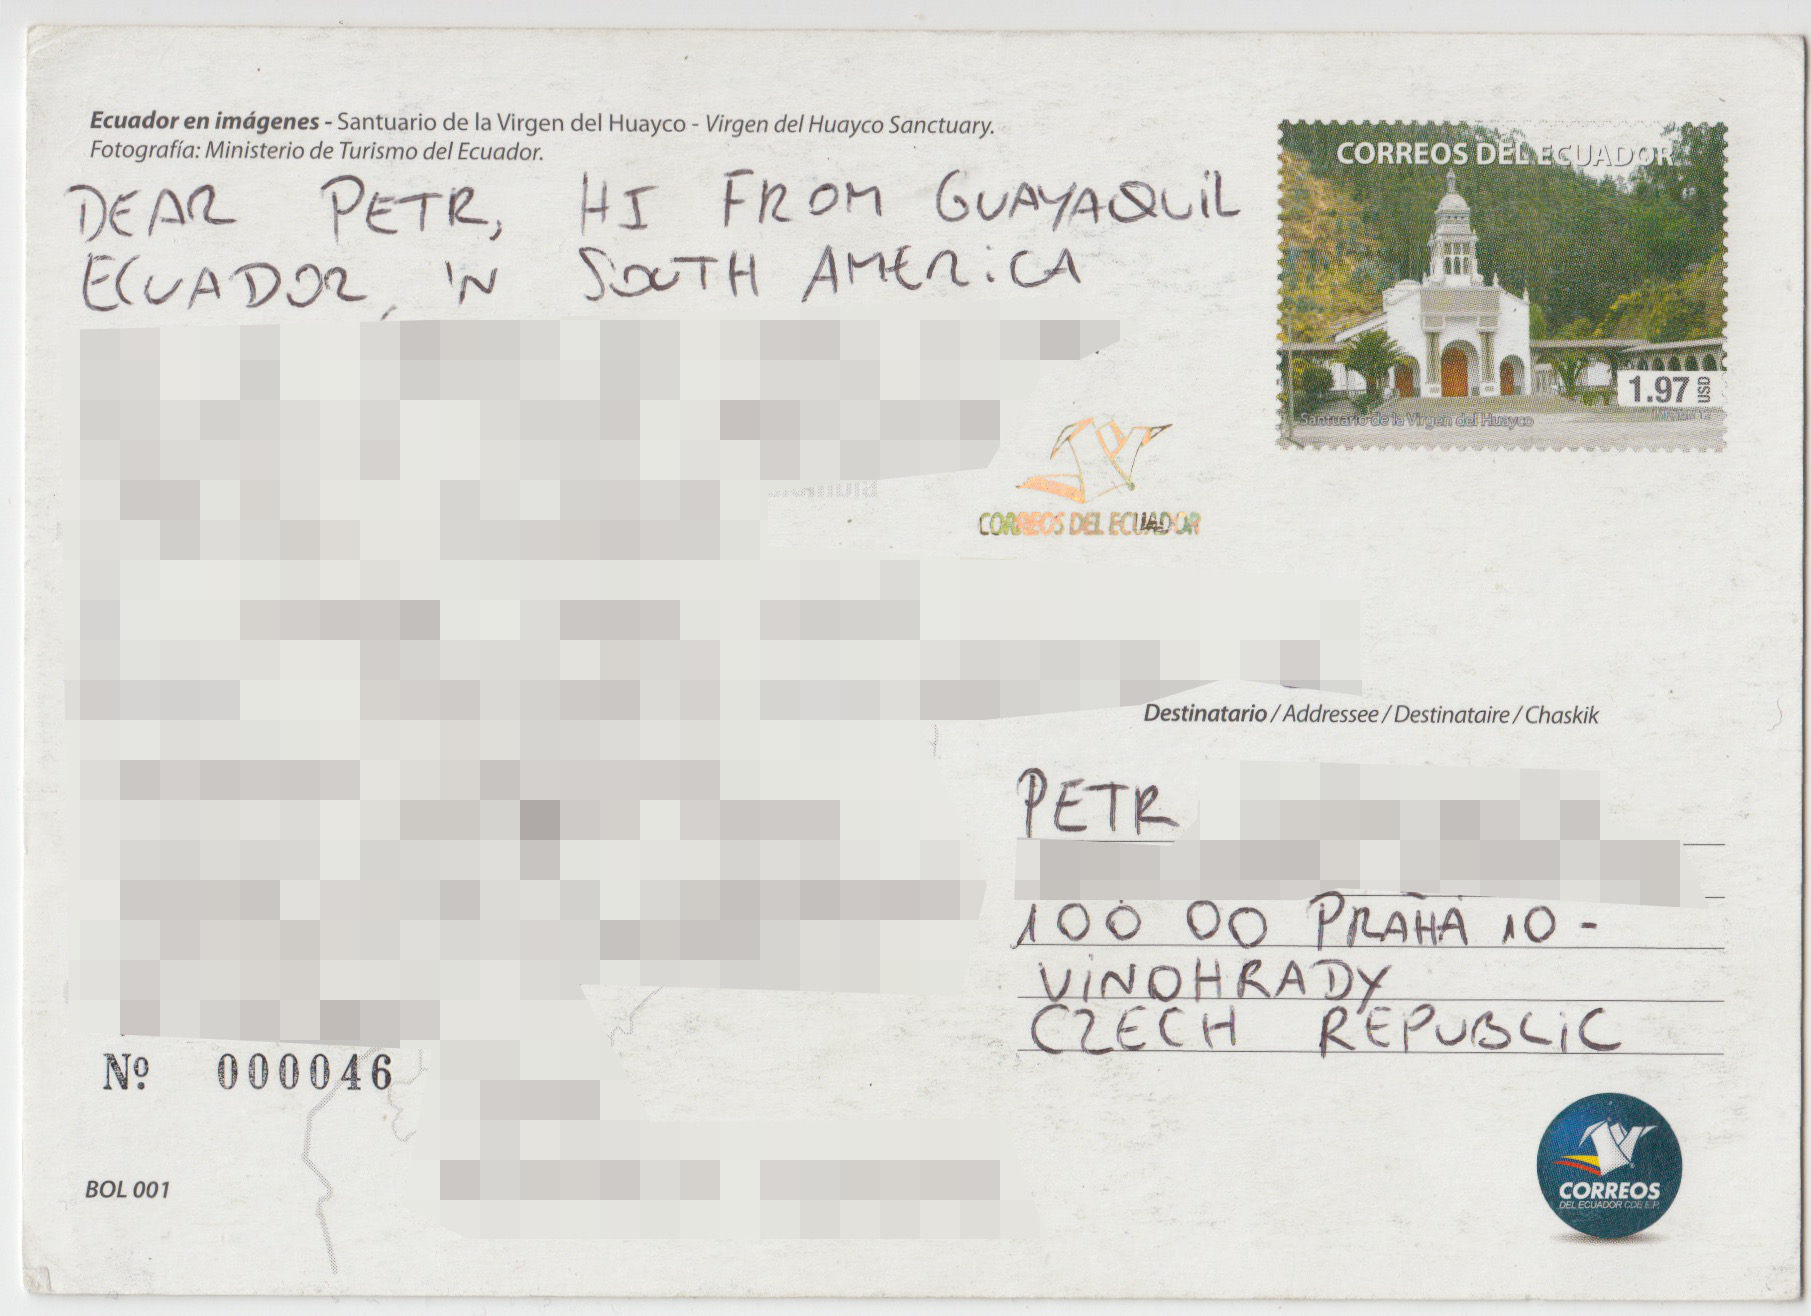 Ecuador en imágenes - Santuario de la Virgen del Huayco - Virgen del Huayco Sanctuary.
Fotografía: Ministerio de Turismo del Ecuador.
DEAR PETR, HI FROM GUAYAQUIL
ECUADOR, IN SOUTH AMERICA
CORREOS DEL ECUADOR
1.97 USD
Santuario de la Virgen del Huayco
CORREOS DEL ECUADOR
Destinatario / Addressee / Destinataire / Chaskik
PETR
100 00 PRAHA 10 -
VINOHRADY
CZECH REPUBLIC
Nº 000046
BOL 001
CORREOS
DEL ECUADOR CDE E.P.